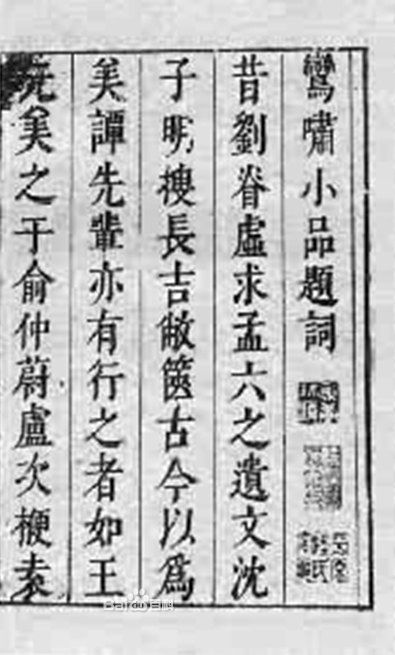 鸞嘯小品題詞
昔劉眘虛求孟六之遺文沈
子明搜長吉敝篋古今以為
美譚先輩亦有行之者如王
元美之于俞仲蔚盧次楩袁
Baidu百科